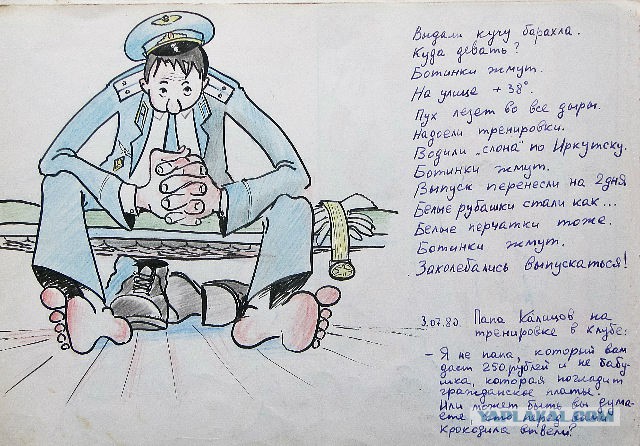 Выдали кучу барахла.
Куда девать?
Ботинки жмут.
На улице +38°.
Пух лезет во все дыры.
Надоели тренировки.
Водили „слона" по Иркутску.
Ботинки жмут.
Выпуск перенесли на 2 дня
Белые рубашки стали как...
Белые перчатки тоже.
Ботинки жмут.
Заколебались выпускаться!
3.07.80. Папа Калицов на
тренировке в клубе:
- Я не папа, который вам
даст 250 рублей и не бабу-
шка, которая погладит
гражданское платье.
Или может быть вы дума-
ете, что перед вами
крокодила вывели?
YAPLAKAL.COM